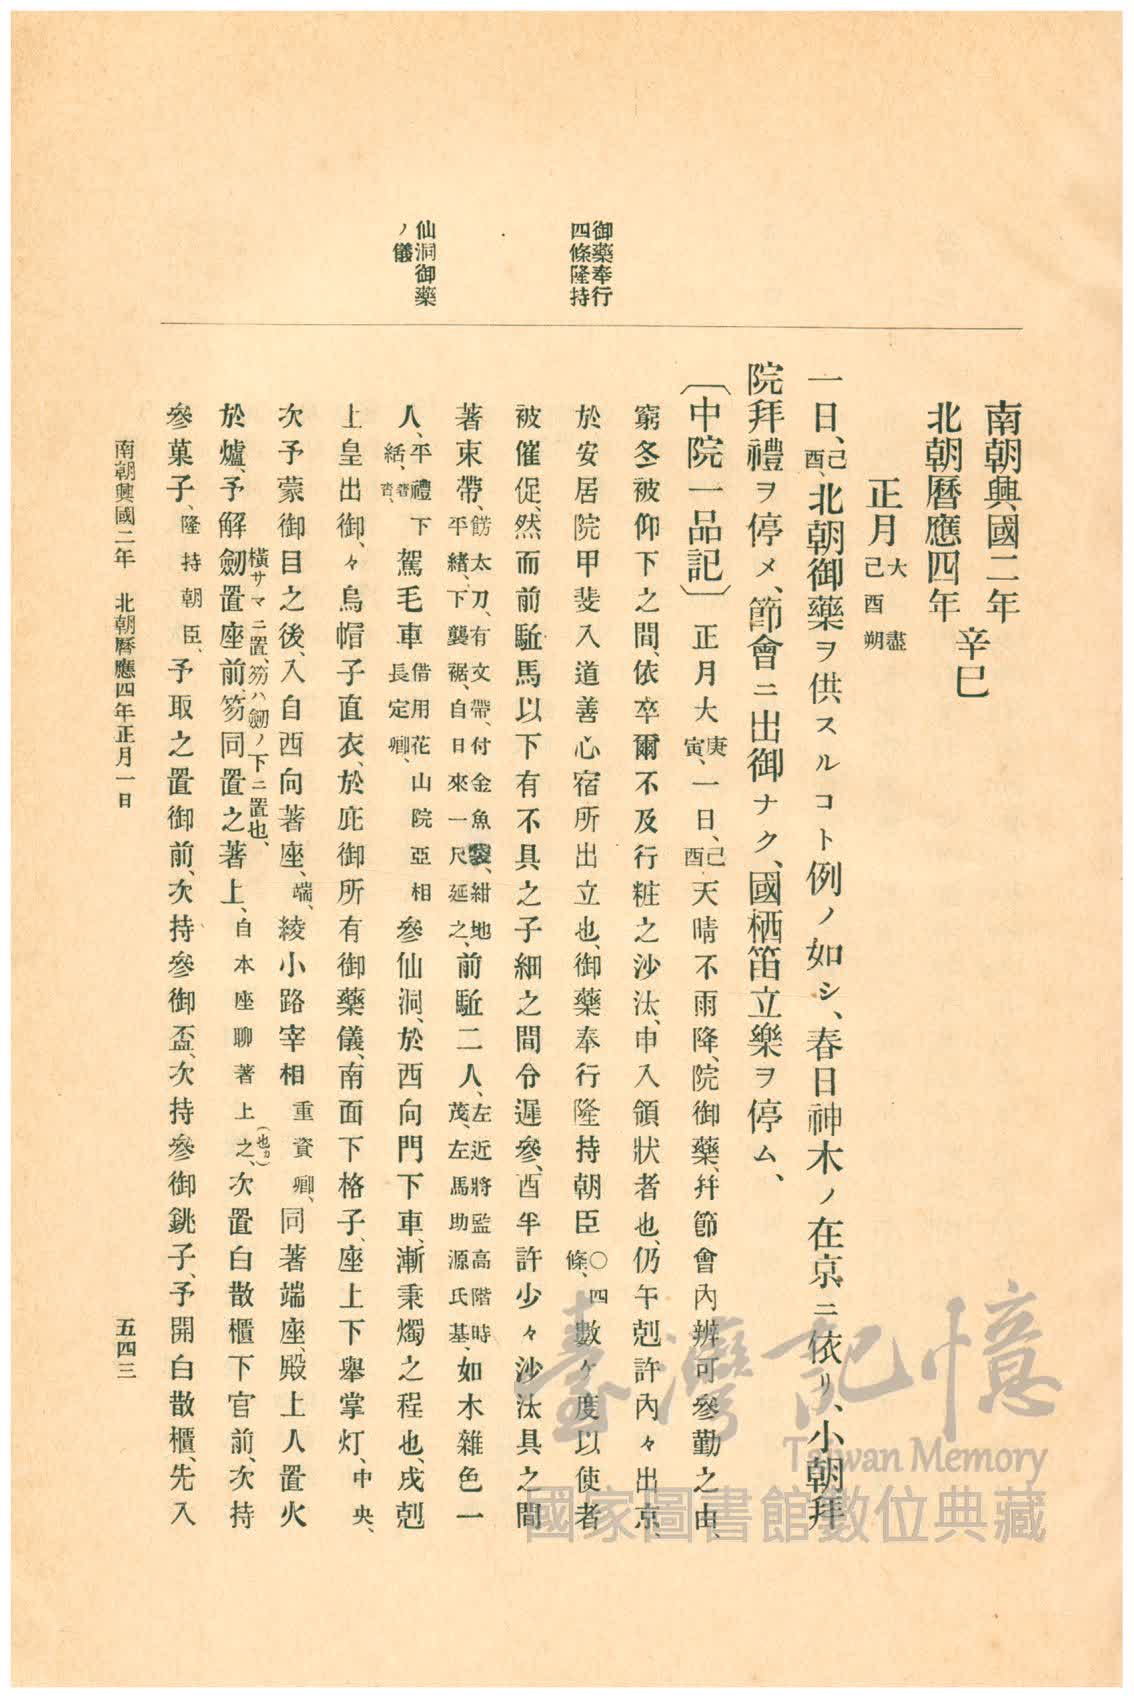 御藥奉行
四條隆持
仙洞御藥
ノ儀
南朝興國二年
北朝曆應四年
辛巳
正月大盡己酉朔
一日、己酉、北朝御藥ヲ供スルコト例ノ如シ、春日神木ノ在京ニ依リ、小朝拜
院拜禮ヲ停メ、節會ニ出御ナク、國栖笛立樂ヲ停ム、
〔中院一品記〕正月大庚寅、一日、己酉、天晴不雨降、院御藥、幷節會內辨可參勤之由、
窮冬被仰下之間、依卒爾不及行粧之沙汰、申入領狀者也、仍午剋許內々出京、
於安居院甲斐入道善心宿所出立也、御藥奉行隆持朝臣〇四條、數ケ度以使者
被催促、然而前駈馬以下有不具之子細之間令遲參、酉半許少々沙汰具之間
著束帶、餝太刀、有文帶、付金魚袋、紺地平緖、下襲裾、自日來一尺延之、前駈二人、左近將監高階時茂、左馬助源氏基、如木雜色一
人、平禮下結、著沓、駕毛車借用花山院亞相長定卿、參仙洞、於西向門下車、漸秉燭之程也、戌剋
上皇出御、々烏帽子直衣、於庇御所有御藥儀、南面下格子、座上下擧掌灯、中央、
次予蒙御目之後、入自西向著座、端、綾小路宰相重資卿、同著端座、殿上人置火
於爐、予解劒置座前、笏同置之著上、自本座聊著上之、次置白散櫃下官前、次持
橫サマニ置、笏ハ劒ノ下ニ置也、
(也カ)
參菓子、隆持朝臣、予取之置御前、次持參御盃、次持參御銚子、予開白散櫃、先入
南朝興國二年　北朝曆應四年正月一日
五四三
臺灣記憶
Taiwan Memory
國家圖書館數位典藏